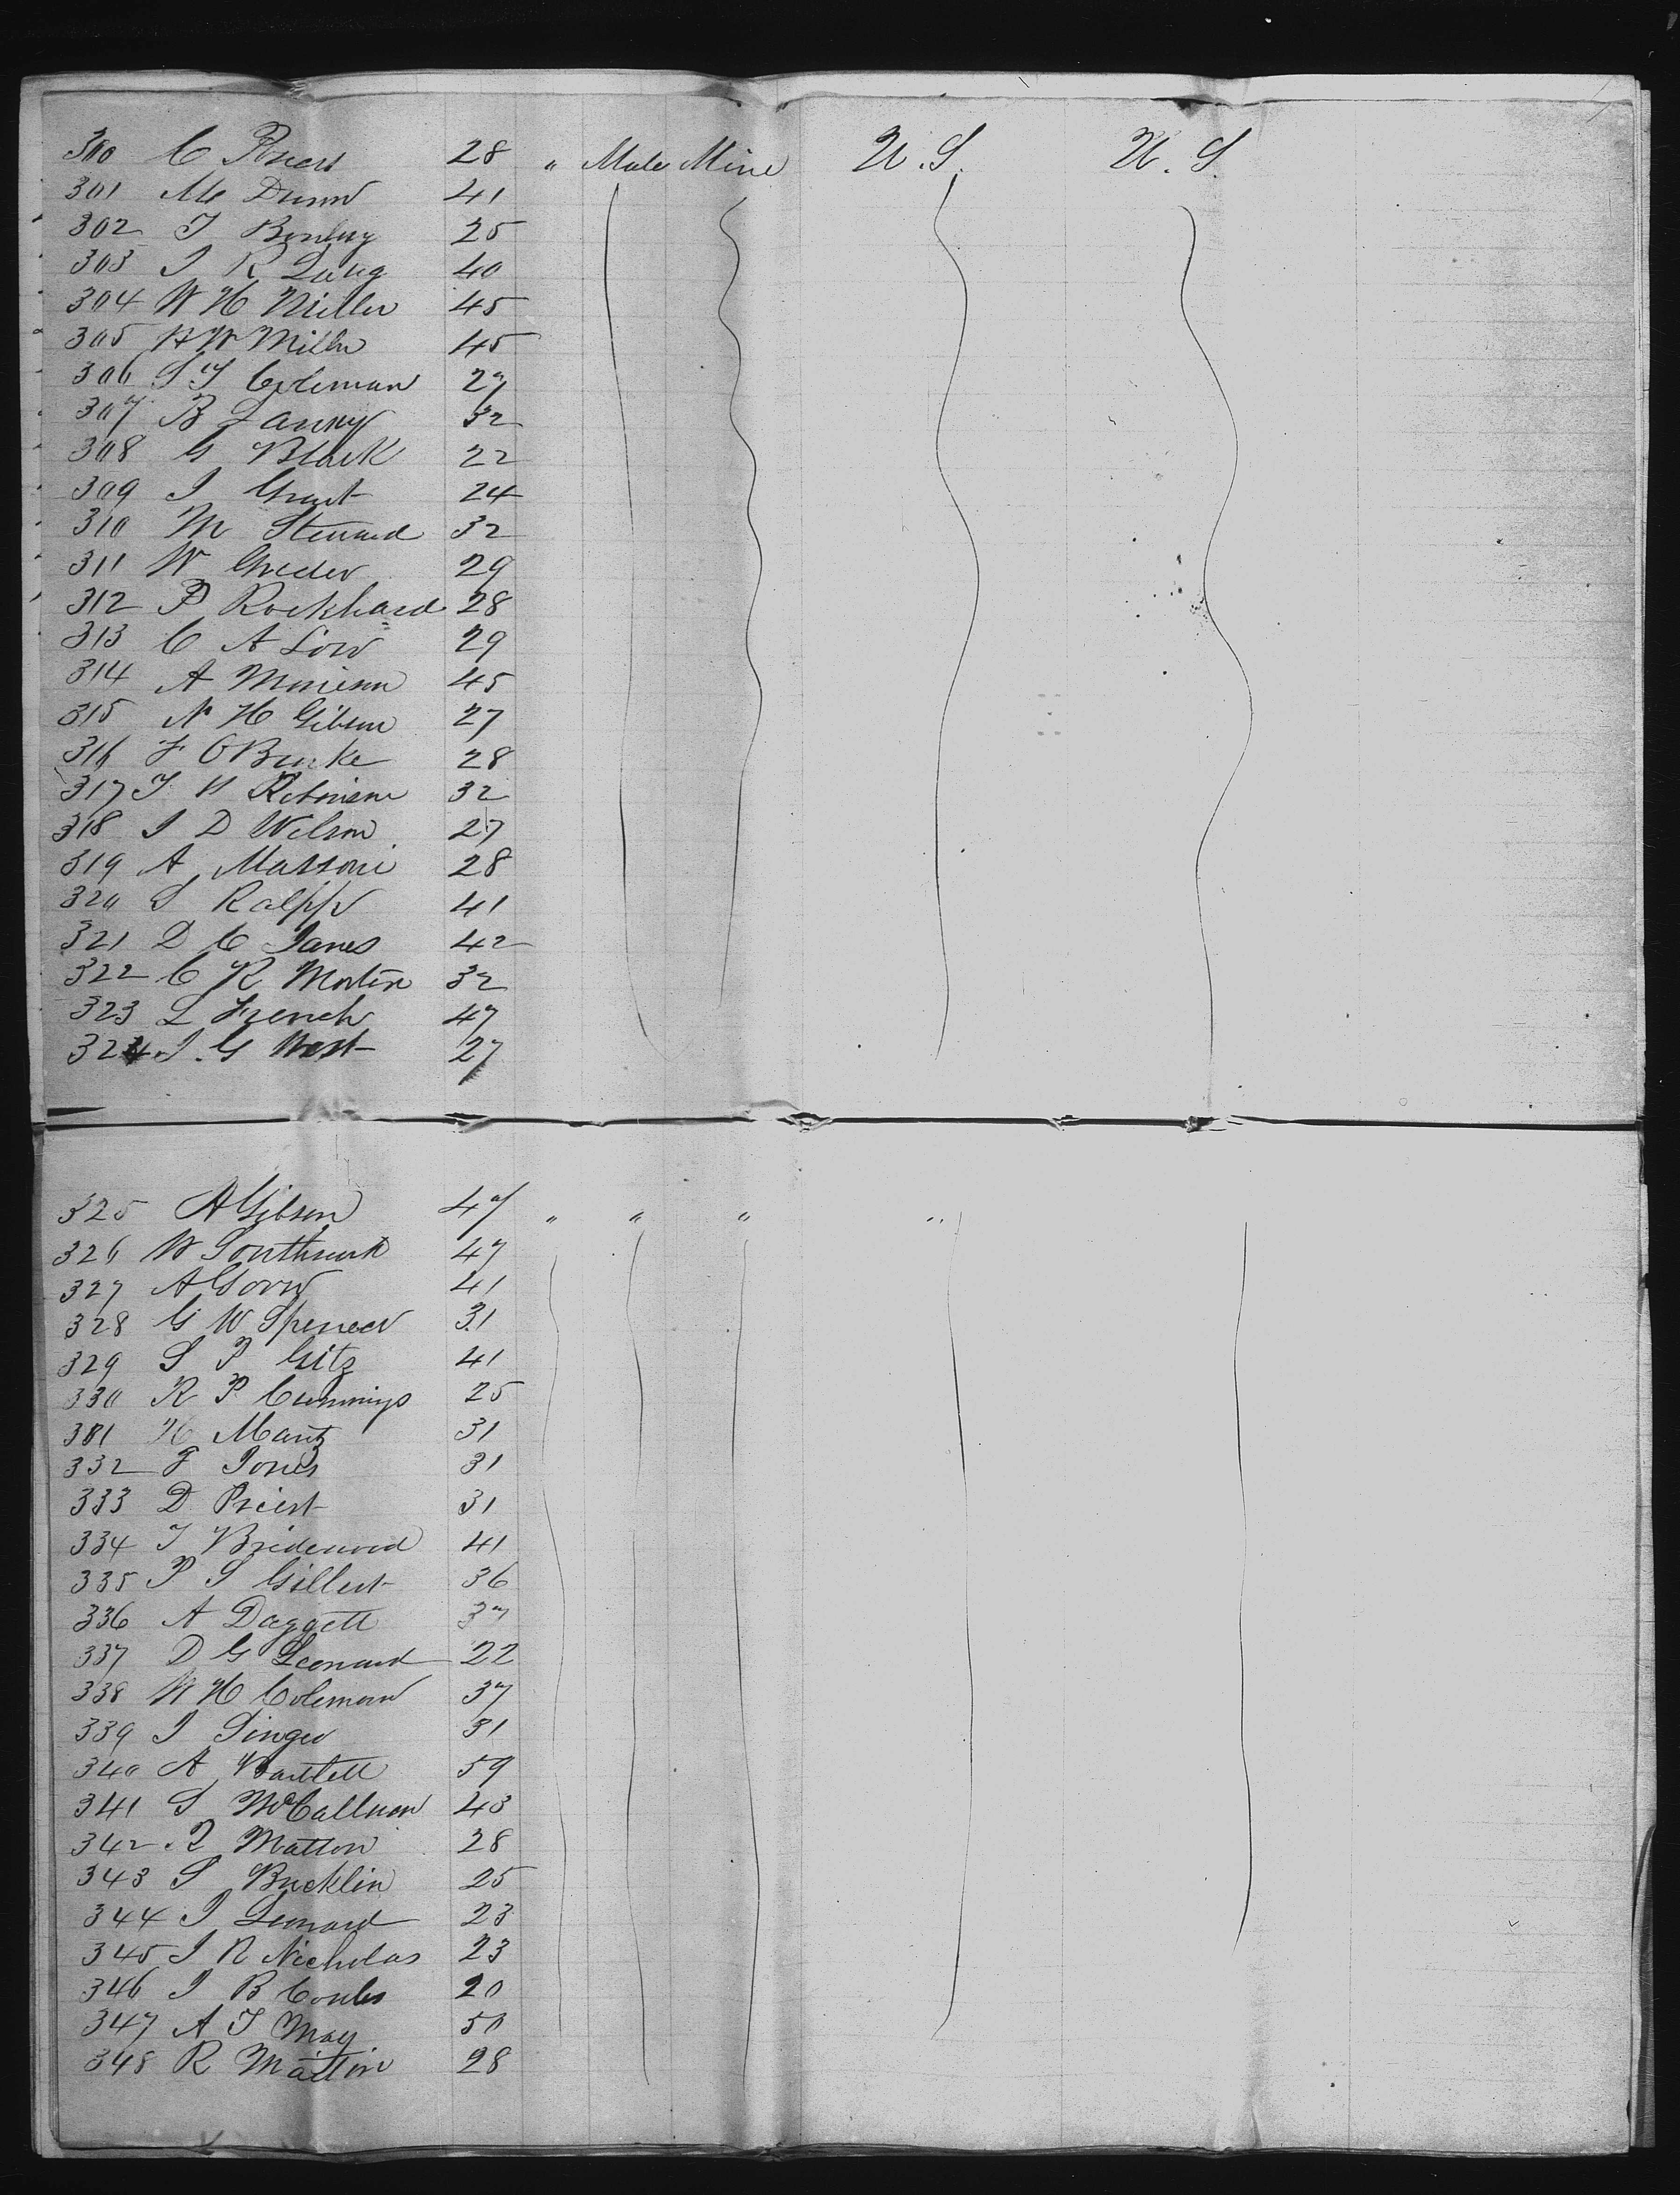 300 C 28 " Male Mine U.S. U.S.
301 Mc Dunn 41
302 T 25
303 J R Lang 40
304 W H Miller 45
305 H W Miller 45
306 S T Coleman 27
307 B Lanny 32
308 G Black 22
309 J Grant 24
310 M Steward 32
311 W Greder 29
312 P Rockhard 28
313 C A Low 29
314 A Morison 45
315 N H Gibson 27
316 F O Burke 28
317 T H Robinson 32
318 J D Wilson 27
319 A Massoni 28
320 S Ralph 41
321 D C Janes 42
322 C R Morten 32
323 L French 47
324 J. G West 27
325 A Gibson 47 " " " "
326 W 47
327 A 41
328 G W Spencer 31
329 S P Gitz 41
330 R P Cummings 25
331 H Mantz 31
332 F Jones 31
333 D Priest 31
334 T Bridewood 41
335 P S Gilbert 36
336 A Daggett 37
337 D G Leonard 22
338 W H Coleman 37
339 J Singer 31
340 A Bartlett 59
341 S McCallum 43
342 R Matton 28
343 S Bucklin 25
344 J Leonard 23
345 J R Nicholas 23
346 J B 20
347 A T May 50
348 R Mattin 28